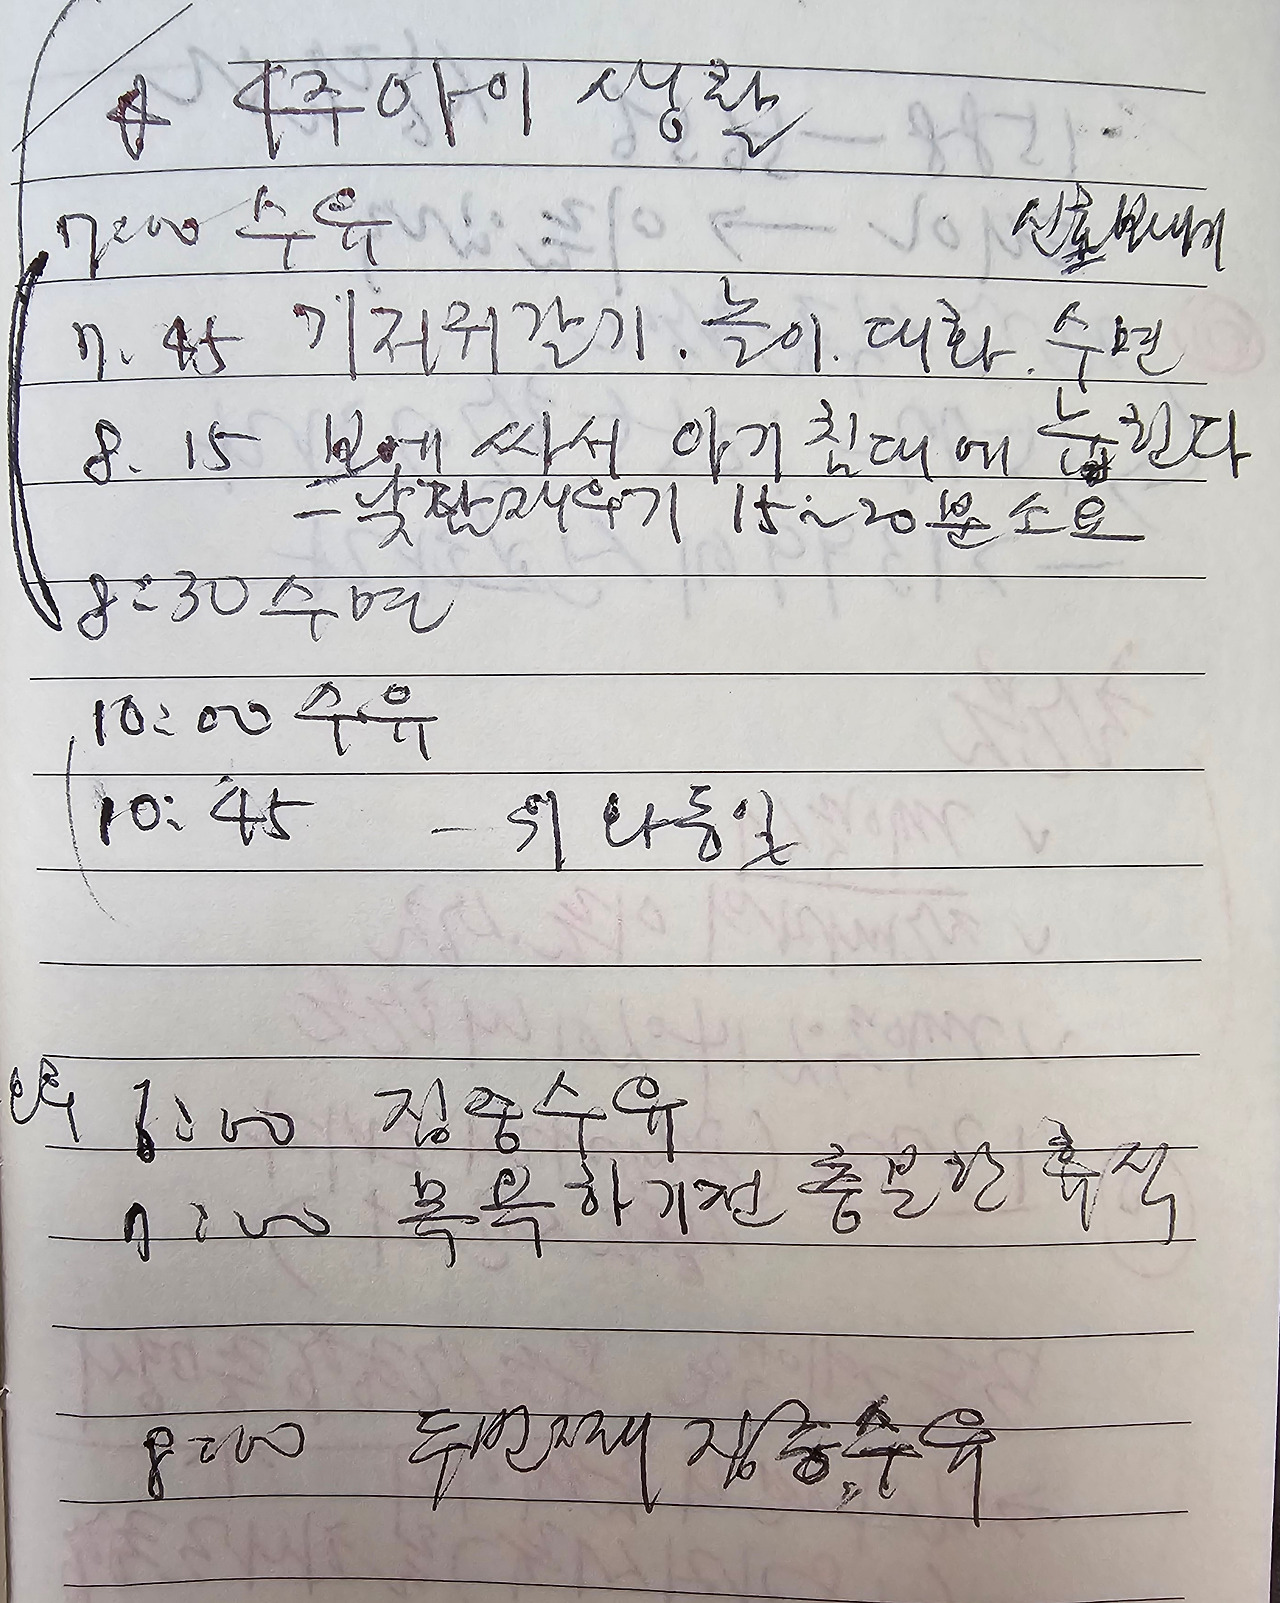 4주 아이 생활
7:00 수유
신호 보내기
7. 45 기저귀 갈기. 놀이. 대화. 수면
8. 15 보에 싸서 아기침대에 눕힌다
- 낮잠재우기 15~20분 소요
8:30 수면
10:00 수유
10:45 - 위와 동일
6:00 집중수유
7:00 목욕하기전 충분한 휴식
8:00 두번째 집중수유